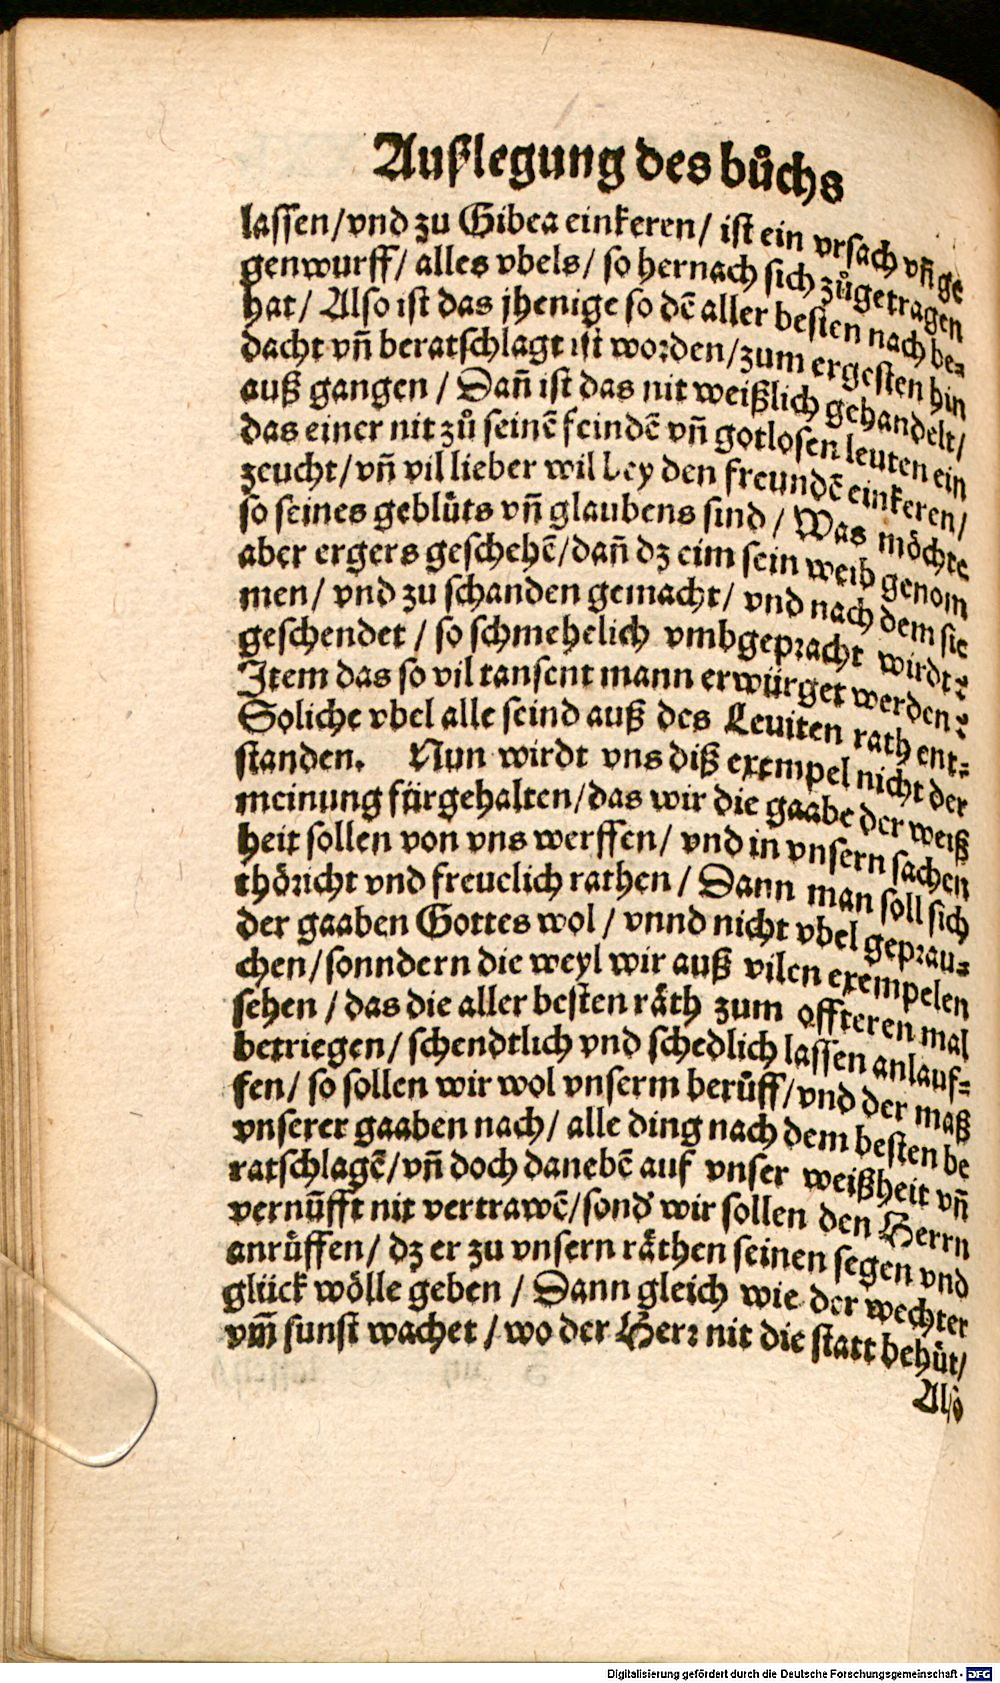 Außlegung des bůchs
lassen/vnd zu Gibea einkeren/ ist ein vrsach vñ ge
genwurff/ alles vbels/ so hernach sich zůgetragen
hat/ Also ist das jhenige so dẽ aller besten nach be-
dacht vñ beratschlagt ist worden/zum ergesten hin
auß gangen / Dañ ist das nit weißlich gehandelt/
das einer nit zů seinẽ feindẽ vñ gotlosen leuten ein
zeucht/vñ vil lieber wil bey den freundẽ einkeren/
so seines geblüts vñ glaubens sind / Was möchte
aber ergers geschehẽ/dañ dz eim sein weib genom
men/ vnd zu schanden gemacht/ vnd nach dem sie
geschendet / so schmehelich vmbgepracht wirdt?
Item das so vil tausent mann erwürget werden?
Soliche vbel alle seind auß des Leuiten rath ent-
standen. Nun wirdt vns diß exempel nicht der
meinung fürgehalten/das wir die gaabe der weiß
heit sollen von vns werffen/ vnd in vnsern sachen
thöricht vnd freuelich rathen / Dann man soll sich
der gaaben Gottes wol / vnnd nicht vbel geprau-
chen/sonndern die weyl wir auß vilen exempelen
sehen / das die aller besten räth zum offteren mal
betriegen/ schendtlich vnd schedlich lassen anlauf-
fen/ so sollen wir wol vnserm berůff/vnd der maß
vnserer gaaben nach/ alle ding nach dem besten be
ratschlagẽ/vñ doch danebẽ auf vnser weißheit vñ
vernůfft nit vertrawẽ/sond' wir sollen den Herrn
anrůffen/ dz er zu vnsern räthen seinen segen vnd
glück wölle geben / Dann gleich wie der wechter
vm̃ sunst wachet / wo der Herr nit die statt behüt/
Also
Digitalisierung gefördert durch die Deutsche Forschungsgemeinschaft - DFG